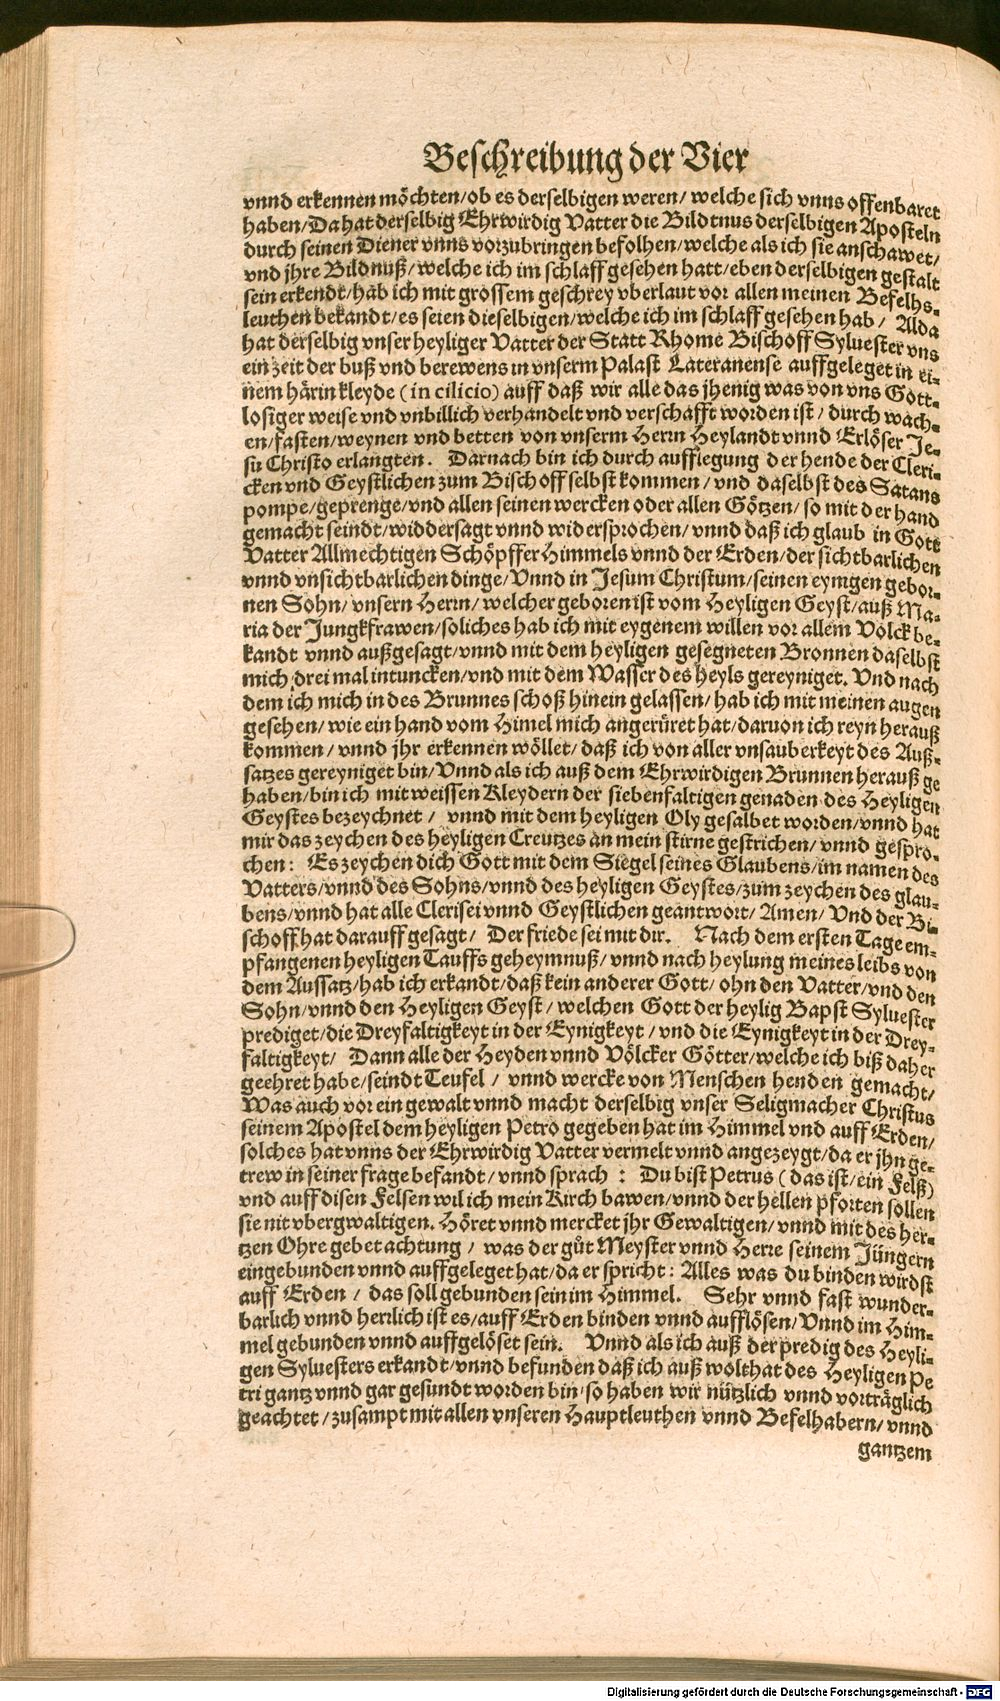 Beschreibung der Vier
vnnd erkennen möchten/ob es derselbigen weren/ welche sich vnns offenbaret
haben/Da hat derselbig Ehrwirdig Vatter die Bildtnus derselbigen Aposteln
durch seinen Diener vnns vorzubringen befolhen/welche als ich sie anschawet/
vnd jhre Bildnuß/welche ich im schlaff gesehen hatt/eben derselbigen gestalt
sein erkendt/hab ich mit grossem geschrey vberlaut vor allen meinen Befelhs-
leuthen bekandt/es seien dieselbigen/welche ich im schlaff gesehen hab/ Alda
hat derselbig vnser heyliger Vatter der Statt Rhome Bischoff Syluester vns
ein zeit der buß vnd berewens in vnserm Palast Lateranense auffgeleget in ei-
nem härin kleyde (in cilicio) auff daß wir alle das jhenig was von vns Gott-
losiger weise vnd vnbillich verhandelt vnd verschafft worden ist/ durch wach-
en/fasten/weynen vnd betten von vnserm Herrn Heylandt vnnd Erlöser Je-
su Christo erlangten. Darnach bin ich durch aufflegung der hende der Cleri-
cken vnd Geystlichen zum Bischoff selbst kommen/ vnd daselbst des Satans
pompe/geprenge/vnd allen seinen wercken oder allen Götzen/ so mit der hand
gemacht seindt/widdersagt vnnd widersprochen/ vnnd daß ich glaub in Gott
Vatter Allmechtigen Schöpffer Himmels vnnd der Erden/der sichtbarlichen
vnnd vnsichtbarlichen dinge/Vnnd in Jesum Christum/seinen eynigen gebor-
nen Sohn/ vnsern Herrn/ welcher geboren ist vom Heyligen Geyst/auß Ma-
ria der Jungkfrawen/soliches hab ich mit eygenem willen vor allem Volck be-
kandt vnnd außgesagt/vnnd mit dem heyligen gesegneten Bronnen daselbst
mich drei mal intuncken/vnd mit dem Wasser des heyls gereyniget. Vnd nach
dem ich mich in des Brunnes schoß hinein gelassen/ hab ich mit meinen augen
gesehen/ wie ein hand vom Himel mich angerüret hat/daruon ich reyn herauß
kommen/ vnnd jhr erkennen wöllet/ daß ich von aller vnsauberkeyt des Auß-
satzes gereyniget bin/Vnnd als ich auß dem Ehrwirdigen Brunnen herauß ge
haben/bin ich mit weissen Kleydern der siebenfaltigen genaden des Heyligen
Geystes bezeychnet/ vnnd mit dem heyligen Oly gesalbet worden/vnnd hat
mir das zeychen des heyligen Creutzes an mein stirne gestrichen/ vnnd gespro-
chen: Es zeychen dich Gott mit dem Siegel seines Glaubens/im namen des
Vatters/vnnd des Sohns/vnnd des heyligen Geystes/zum zeychen des glau-
bens/vnnd hat alle Clerisei vnnd Geystlichen geantwort/ Amen/ Vnd der Bi-
schoff hat darauff gesagt/ Der friede sei mit dir. Nach dem ersten Tage em-
pfangenen heyligen Tauffs geheymnuß/ vnnd nach heylung meines leibs von
dem Aussatz/hab ich erkandt/daß kein anderer Gott/ ohn den Vatter/vnd den
Sohn/vnnd den Heyligen Geyst/ welchen Gott der heylig Bapst Syluester
prediget/die Dreyfaltigkeyt in der Eynigkeyt/ vnd die Eynigkeyt in der Drey-
faltigkeyt/ Dann alle der Heyden vnnd Völcker Götter/welche ich biß daher
geehret habe/seindt Teufel/ vnnd wercke von Menschen henden gemacht/
Was auch vor ein gewalt vnnd macht derselbig vnser Seligmacher Christus
seinem Apostel dem heyligen Petro gegeben hat im Himmel vnd auff Erden/
solches hat vnns der Ehrwirdig Vatter vermelt vnnd angezeygt/da er jhn ge-
trew in seiner frage befandt/ vnnd sprach: Du bist Petrus (das ist/ein Felß)
vnd auff disen Felsen wil ich mein Kirch bawen/vnnd der hellen pforten sollen
sie nit vbergwaltigen. Höret vnnd mercket jhr Gewaltigen/ vnnd mit des her-
tzen Ohre gebet achtung/ was der güt Meyster vnnd Herre seinem Jüngern
eingebunden vnnd auffgeleget hat/da er spricht: Alles was du binden wirdst
auff Erden/ das soll gebunden sein im Himmel. Sehr vnnd fast wunder-
barlich vnnd herrlich ist es/auff Erden binden vnnd aufflösen/Vnnd im Him-
mel gebunden vnnd auffgelöset sein. Vnnd als ich auß der predig des Heyli-
gen Syluesters erkandt/vnnd befunden daß ich auß wolthat des Heyligen Pe
tri gantz vnnd gar gesundt worden bin/so haben wir nützlich vnnd vorträglich
geachtet/zusampt mit allen vnseren Hauptleuthen vnnd Befelhabern/vnnd
gantzem
Digitalisierung gefördert durch die Deutsche Forschungsgemeinschaft - DFG